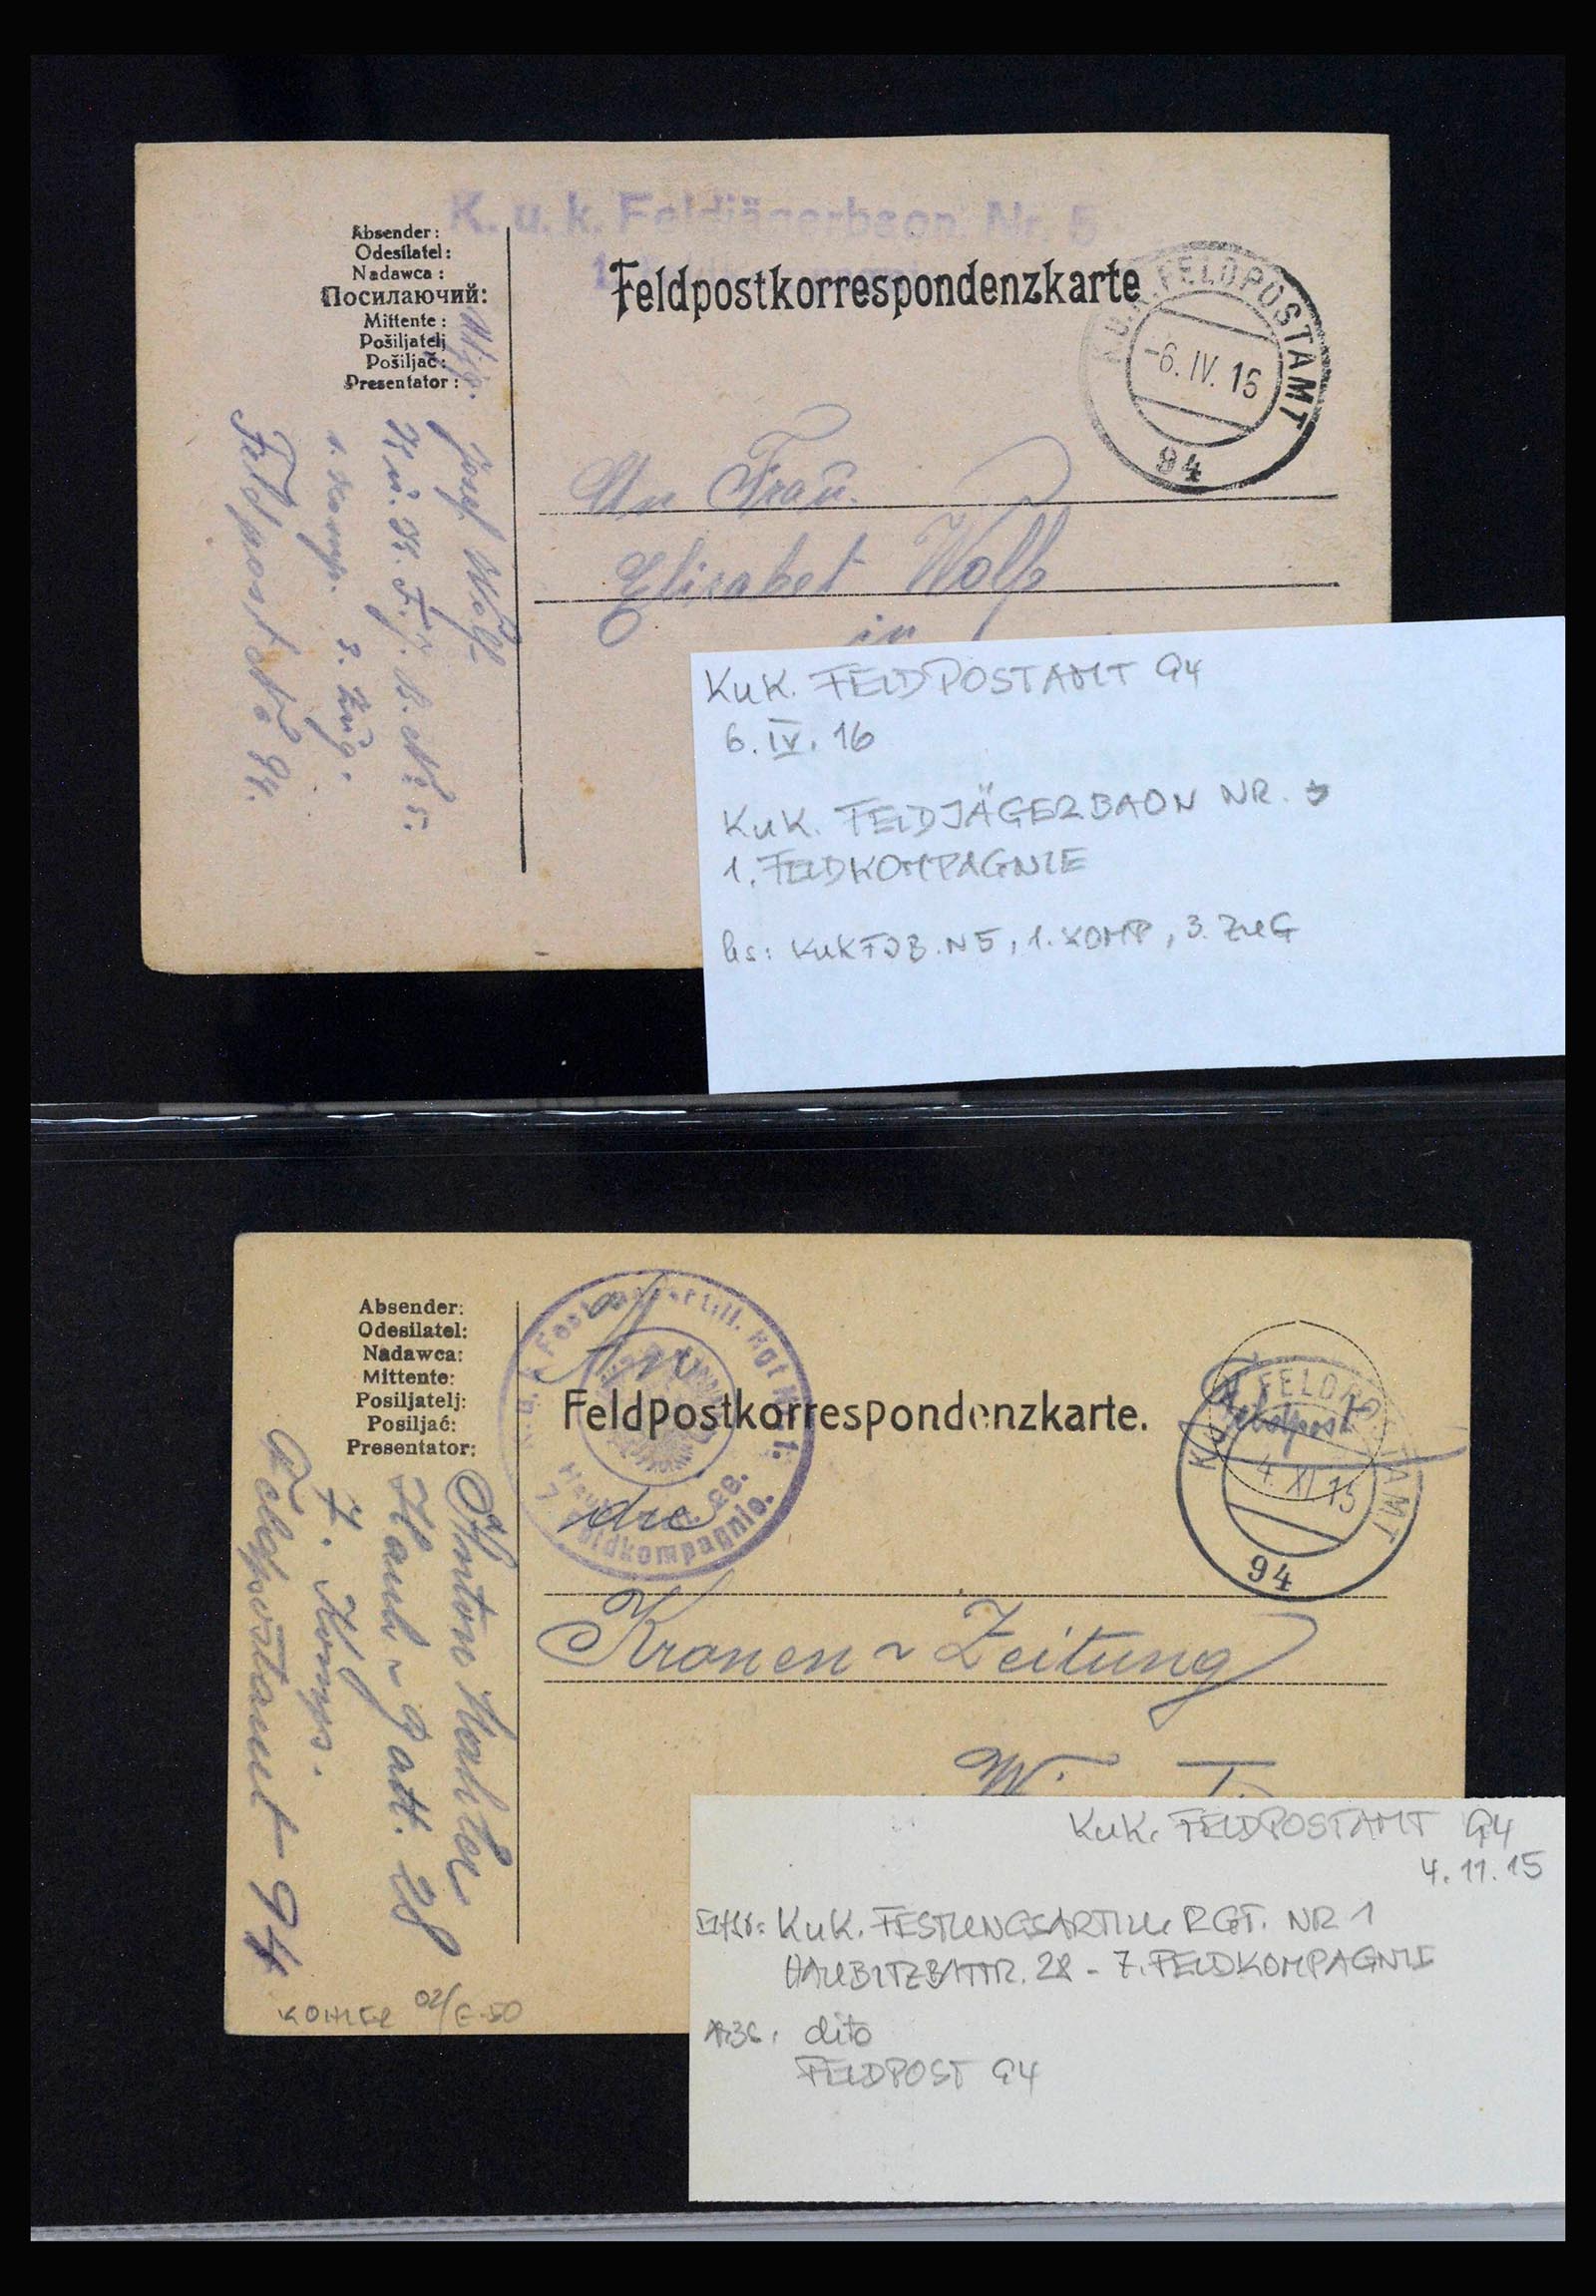 K. u. k. Feldjägerbaon Nr. 5
1.
Absender:
Odesílatel:
Nadawca:
Посилаючий:
Mittente:
Pošiljatelj
Pošiljač:
Presentator:
Feldpostkorrespondenzkarte
K.u.K. FELDPOSTAMT
-6. IV. 16
94
Josef Wolf
K. u. K. F. J. B. No 5.
1. Komp. 3. Zug.
Feldpost No 94.
An Frau
Elisabet Wolf
in
KuK. FELDPOSTAMT 94
6. IV. 16
KuK. FELDJÄGERBAON NR. 5
1. FELDKOMPAGNIE
hs: KuK FJB. N5, 1. KOMP, 3. ZUG
Absender:
Odesilatel:
Nadawca:
Mittente:
Posiljatelj:
Posiljać:
Presentator:
k.u.k. Festungsartill. Rgt Nr. 1.
28.
7. Feldkompagnie.
Feldpostkorrespondenzkarte.
K.u.K. FELDPOSTAMT
4. XI 15
94
Feldpost
An
die
Kronen ~ Zeitung
Anton
Haub ~ Batt. 28
7. Komp.
Feldpostamt 94
KOHLER 02/E-50
KuK. FELDPOSTAMT 94
4. 11. 15
KuK. FESTUNGSARTILL RGT. NR 1
HAUBITZBATTR. 28 - 7. FELDKOMPAGNIE
ABS. dito
FELDPOST 94